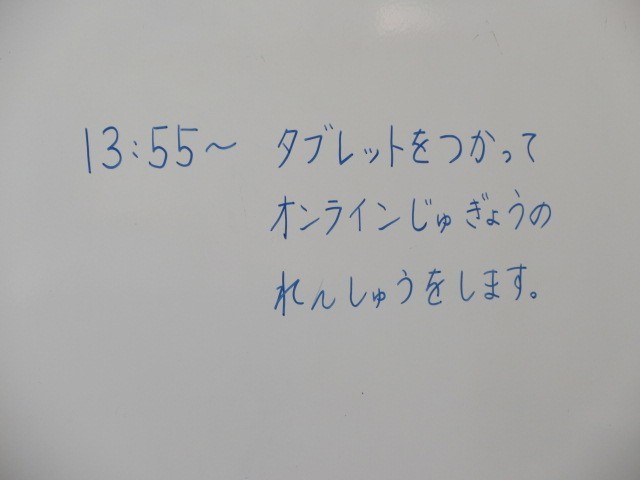 13:55～ タブレットをつかって
オンラインじゅぎょうの
れんしゅうをします。